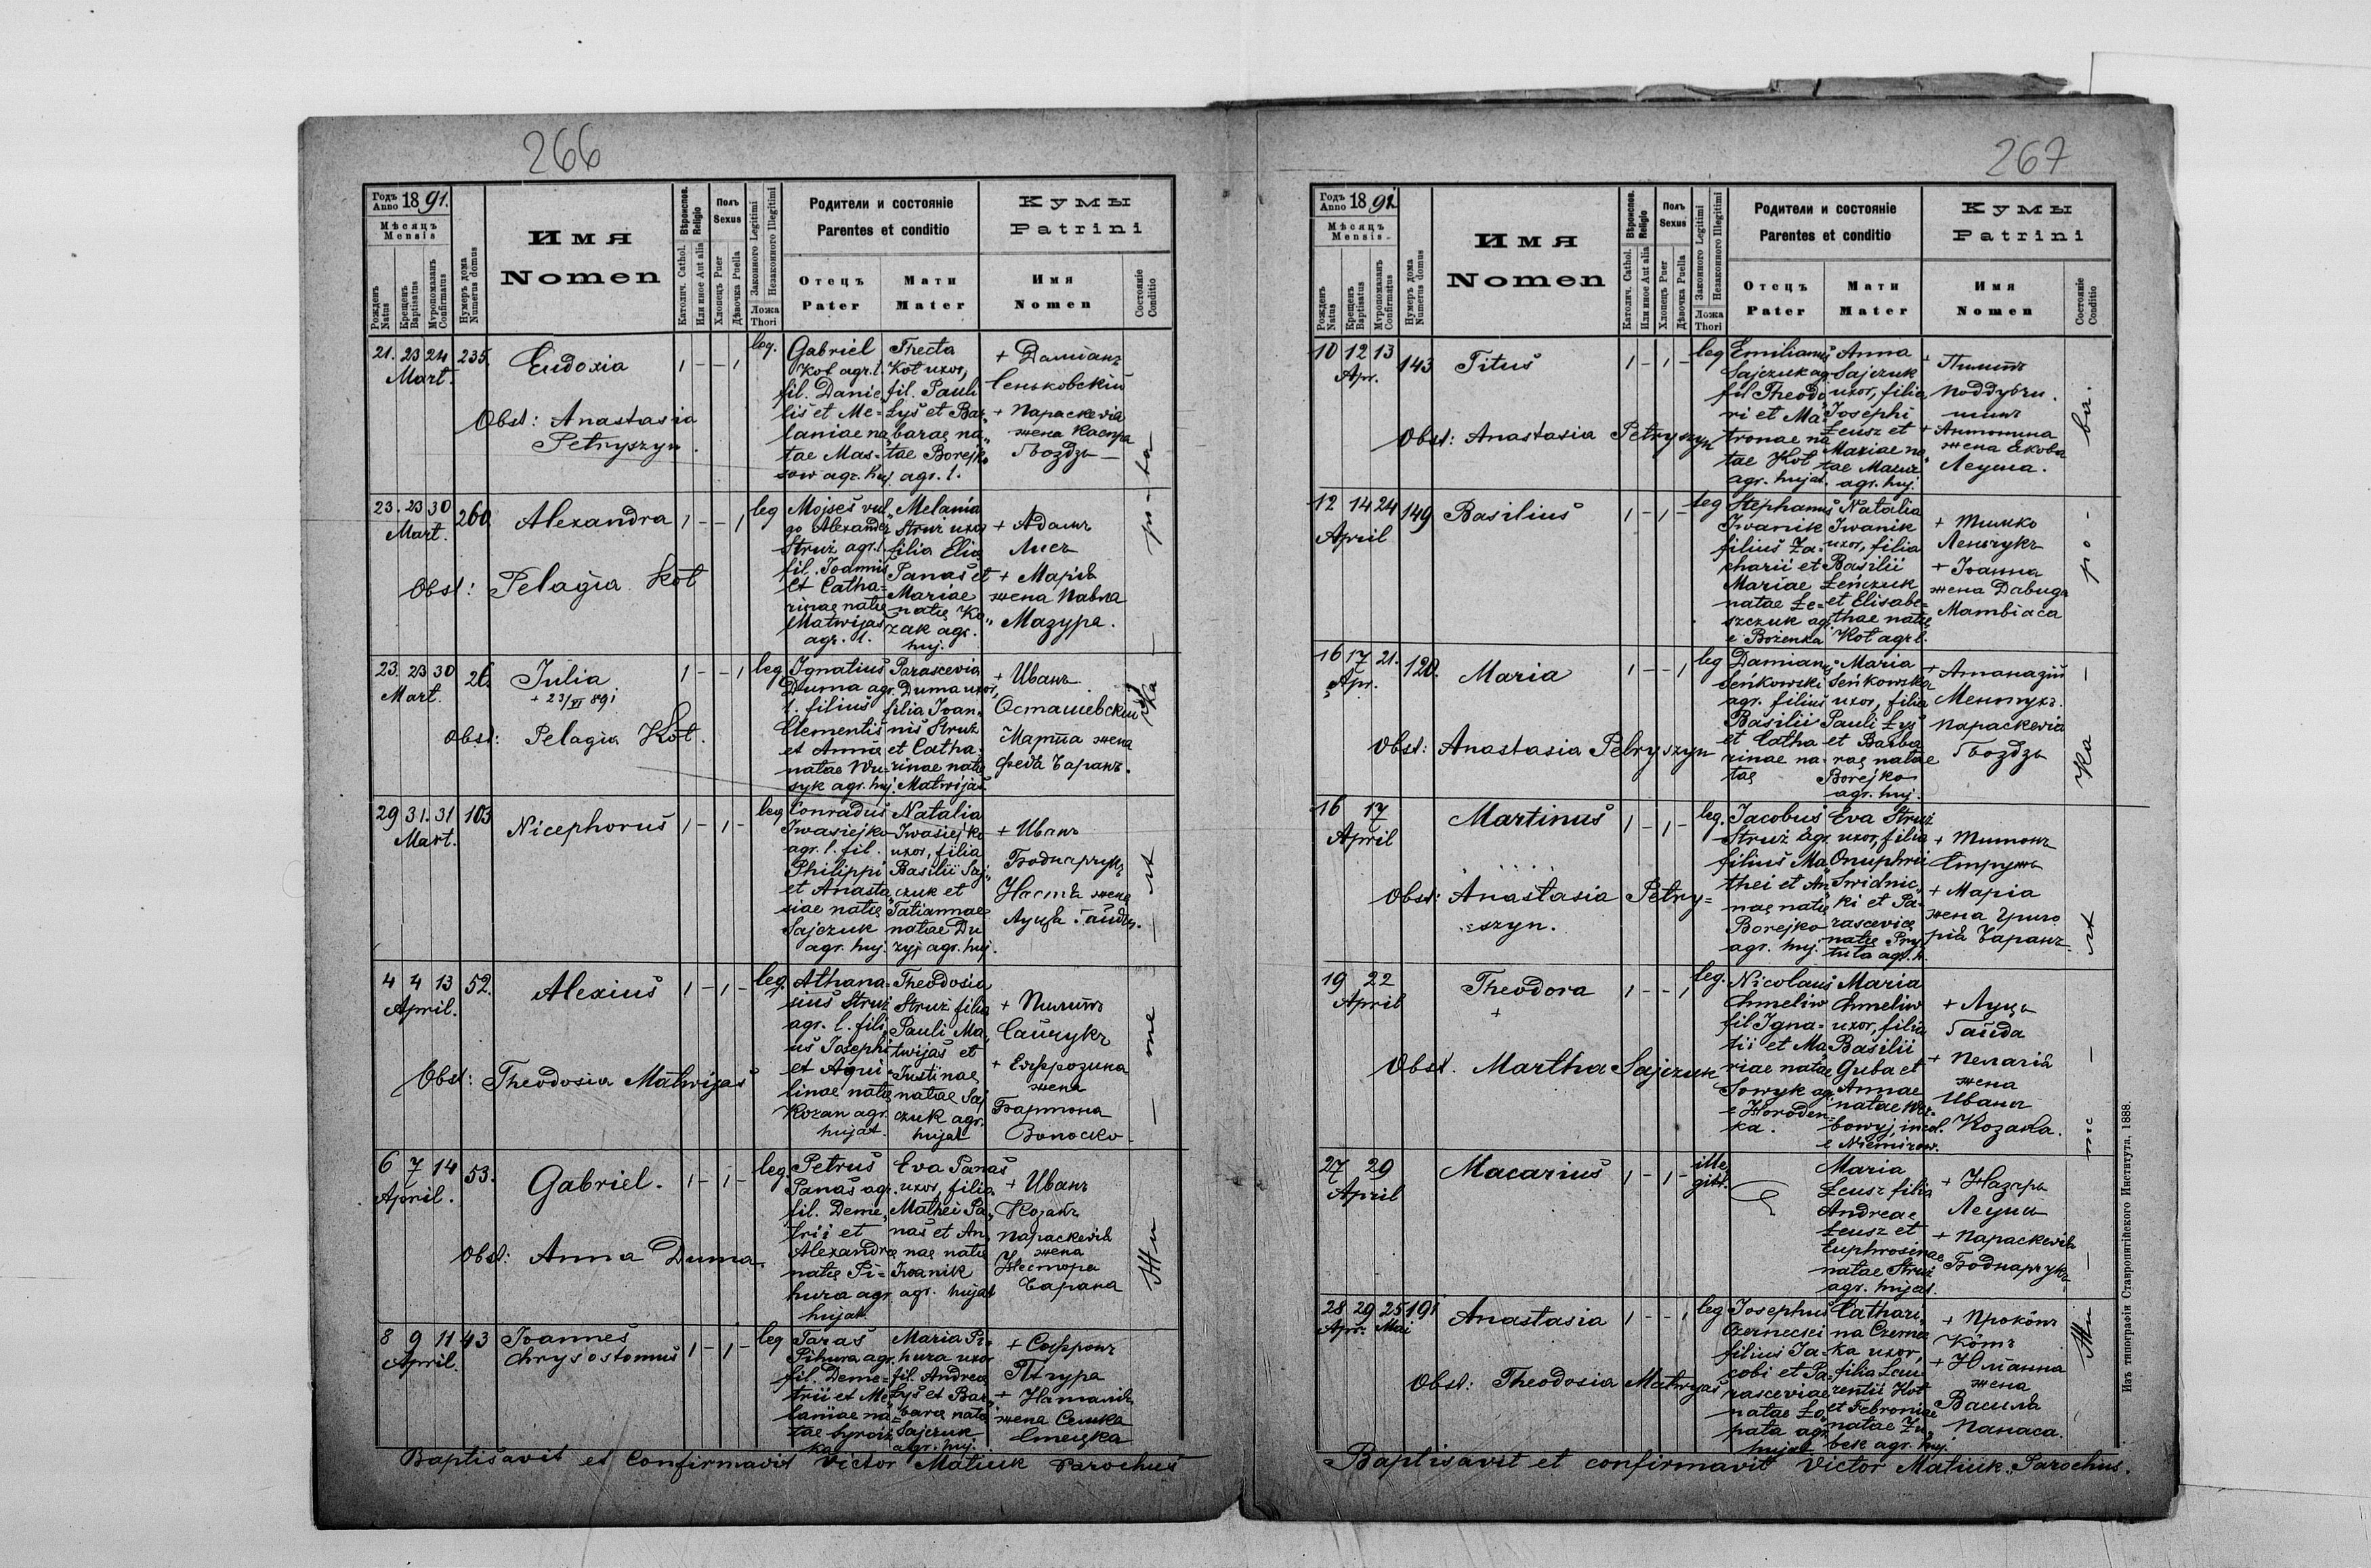 266
Годъ Anno 1891.
Мѣсяцъ Mensis
Рожденъ Natus
Крещенъ Baptisatus
Муропомазанъ Confirmatus
Нумеръ дома Numerus domus
Имя
Nomen
Вѣроиспов. Religio
Католич. Cathol.
Или иное Aut alia
Полъ Sexus
Хлопецъ Puer
Дѣвочка Puella
Законного Legitimi
Незаконного Illegitimi
Ложа Thori
Родители и состоянiе
Parentes et conditio
Отецъ Pater
Мати Mater
Кумы
Patrini
Имя Nomen
Состоянiе Conditio
21. 23 24 Mart. 235
Eudoxia
1 - - 1 leg.
Obst: Anastasia
Petryszyn.
Gabriel
Kot agr. l.
fil. Danie
lis et Me=
laniae na
tae Mas=
sow agr. huj.
Thecla
Kot uxor,
fil. Pauli
Łyś et Bar
barae na
tae Borejko
agr. l.
+ Дамiанъ
Сеньковскiй
+ Параскевiа
жена Каспра
Гвоздь
23. 23 30 Mart. 260
Alexandra
1 - - 1 leg
Obst: Pelagia Kot
Mojses vul
go Alexander
Struż agr. l.
fil. Joannis
et Catha=
rinae natae
Matwijas
agr. l.
Melania
Struż uxor
filia Eliae
Panas et
Mariae
natae Ko
zak agr.
huj.
+ Адамъ
Лисъ
+ Марiѣ
жена Павла
Мазура.
23. 23 30 Mart. 26
Julia
+ 23/VI 891
1 - - 1 leg
Obst: Pelagia Kot.
Ignatius
Duma agr.
l. filius
Clementis
et Annae
natae Wu=
syk agr. huj.
Parascevia
Duma uxor,
filia Joan
nis Struż
et Catha=
rinae natae
Matwijas
+ Иванъ
Осташевскiй
Марта жена
Федѣ Баранъ.
29 31. 31 Mart. 103
Nicephorus
1 - 1 - leg
Conradus
Iwasiejko
agr. l. fil.
Philippi
et Anasta
siae natae
Sajczuk
agr. huj.
Natalia
Iwasiejko
uxor, filia
Basilii Saj
czuk et
Tatiannae
natae Du
zyj agr. huj.
+ Иванъ
Боднарчукъ
Настѣ жена
Луцѣ Гайды.
4 4 13 April. 52.
Alexius
1 - 1 - leg.
Obst: Theodosia Matwijas
Athana=
sius Struż
agr. l. fili
us Josephi
et Aqui
linae natae
Kozan agr.
hujat.
Theodosia
Struż filia
Pauli Ma
twijas et
Justinae
natae Saj
czuk agr.
hujat
+ Пилипъ
Сайчукъ
+ Евфрозина
жена
Бартона
Волоско
6 7 14 April. 53.
Gabriel.
1 - 1 - leg
Obst: Anna Duma.
Petrus
Panas agr.
fil. Deme
trii et
Alexandrae
natae Pi=
hura agr.
hujat
Eva Panas
uxor, filia
Mathei Pa
nas et An
nae natae
Iwanik
agr. hujat
+ Иванъ
Козакъ
Параскевiѣ
жена
Нестора
Барана
8 9 11 April. 43
Joannes
Chrysostomus
1 - 1 - leg
Taras
Pihura agr.
fil. Deme=
trii et Me
laniae na=
tae Syroiż
ka
Maria Pi
hura uxor
fil. Andreae
Łyś et Bar
barae natae
Sajczuk
agr. huj.
+ Сафронъ
Пѣгура
+ Наталiѣ
жена Сенька
Стецка
Baptisavit et Confirmavit Victor Matiuk Parochus
267
Годъ Anno 1891.
Мѣсяцъ Mensis
Рожденъ Natus
Крещенъ Baptisatus
Муропомазанъ Confirmatus
Нумеръ дома Numerus domus
Имя
Nomen
Вѣроиспов. Religio
Католич. Cathol.
Или иное Aut alia
Полъ Sexus
Хлопецъ Puer
Дѣвочка Puella
Законного Legitimi
Незаконного Illegitimi
Ложа Thori
Родители и состоянiе
Parentes et conditio
Отецъ Pater
Мати Mater
Кумы
Patrini
Имя Nomen
Состоянiе Conditio
10 12 13 Apr. 143
Titus
1 - 1 - leg
Obst: Anastasia Petryszyn
Emilianus
Sajczuk ag
fil Theodo
ri et Ma
tronae na
tae Kot
agr. hujat.
Anna
Sajczuk
uxor, filia
Josephi
Łeusz et
Mariae na
tae Mazur
agr. huj.
+ Пилипъ
Поддубчи
шинъ
+ Антонина
жена Якова
Леуша.
12 14 24 April 149
Basilius
1 - 1 - leg
Stephanus
Iwanik
filius Za=
charii et
Mariae
natae Łe=
szczuk ag.
e Bożenka
Natalia
Iwanik
uxor, filia
Basilii
Łeńczuk
et Elisabe=
thae natae
Kot agr l.
+ Тимко
Ленчукъ
+ Iоанна
жена Давида
Матвiаса
16 17 21. Apr. 120.
Maria
1 - - 1 leg
Obst: Anastasia Petryszyn
Damianus
Seńkowski
agr. filius
Basilii
et Catha
rinae na=
tae
Maria
Seńkowska
uxor, filia
Pauli Łyś
et Barba
rae natae
Borejko
agr. huj.
+ Атаназiй
Параскевiа
Гвоздь
16 17 April
Martinus
1 - 1 - leg.
Obst: Anastasia Petry=
=szyn.
Jacobus
Struż agr.
filius Ma
thei et An
nae natae
Borejko
agr. huj.
Eva Struż
uxor, filia
Onuphrii
Swidnic
ki et Pa=
rasceviae
natae Pry
tuła agr. h.
+ Титонъ
Стружъ
+ Марiа
жена Григо
рiѣ Баранъ
19 22 April
Theodora
+
1 - - 1 leg.
Obst. Martha Sajczuk
Nicolaus
Chmeliw
fil Igna=
tii et Ma
riae natae
Sowyk ag.
e Horoden=
ka.
Maria
Chmeliw
uxor, filia
Basilii
Guba et
Annae
natae Wer=
bowyj incol.
e Niemirow.
+ Луць
Гайда
+ Пелагiѣ
жена
Ивана
Козака.
27 29 April
Macarius
1 - 1 - ille
git.
Maria
Łeusz filia
Andreae
Łeusz et
Euphrosinae
natae Struż
agr. hujat.
+ Назаръ
Леуша
+ Параскевiѣ
Боднарчукъ
28 29 25 Apr. Mai 191
Anastasia
1 - - 1 leg
Obst: Theodosia Matwijas
Josephus
Czernecsei
filius Ja=
cobi et Pa
rasceviae
natae Ło
pata agr.
hujat
Cathari
na Czernec
ka uxor,
filia Lau
rentii Kot
et Febroniae
natae Zu
bek agr. huj.
+ Прокôпъ
Кôтъ
+ Юлiанна
жена
Василѣ
Панаса.
Baptisavit et confirmavit Victor Matiuk. Parochus.
Изъ типографiи Ставропигiйского Института, 1888.